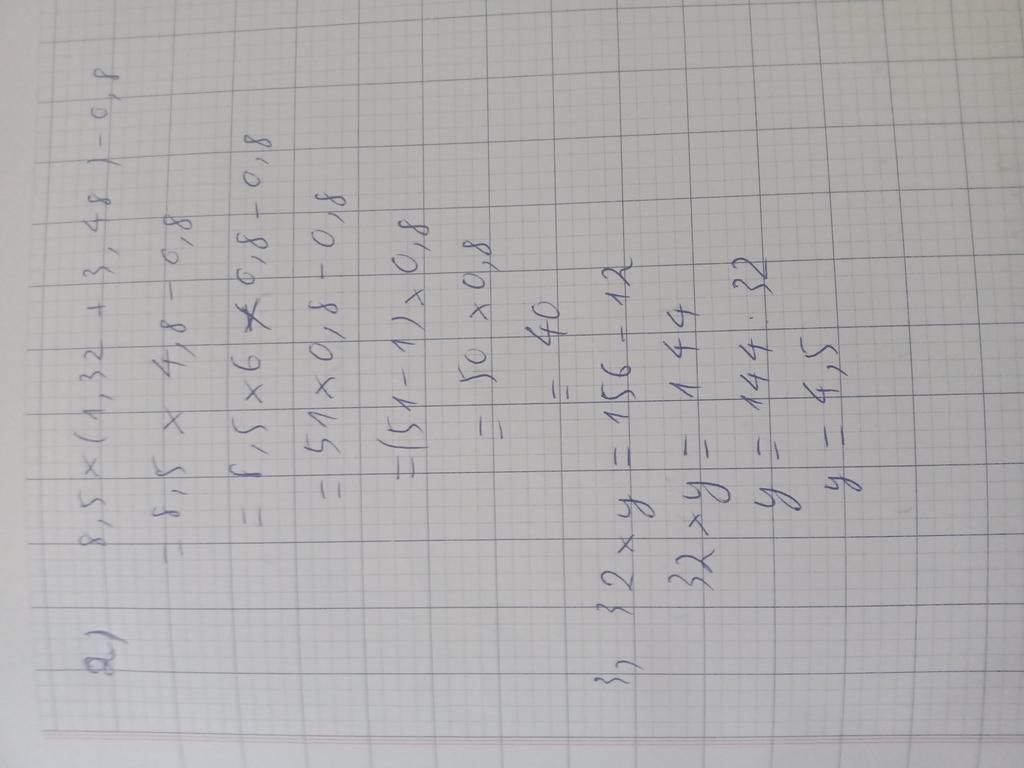 2) 8,5 x (1,32 + 3,48) - 0,8
= 8,5 x 4,8 - 0,8
= 8,5 x 6 x 0,8 - 0,8
= 51 x 0,8 - 0,8
= (51 - 1) x 0,8
= 50 x 0,8
= 40
3, 32 x y = 156 - 12
32 x y = 144
y = 144 : 32
y = 4,5